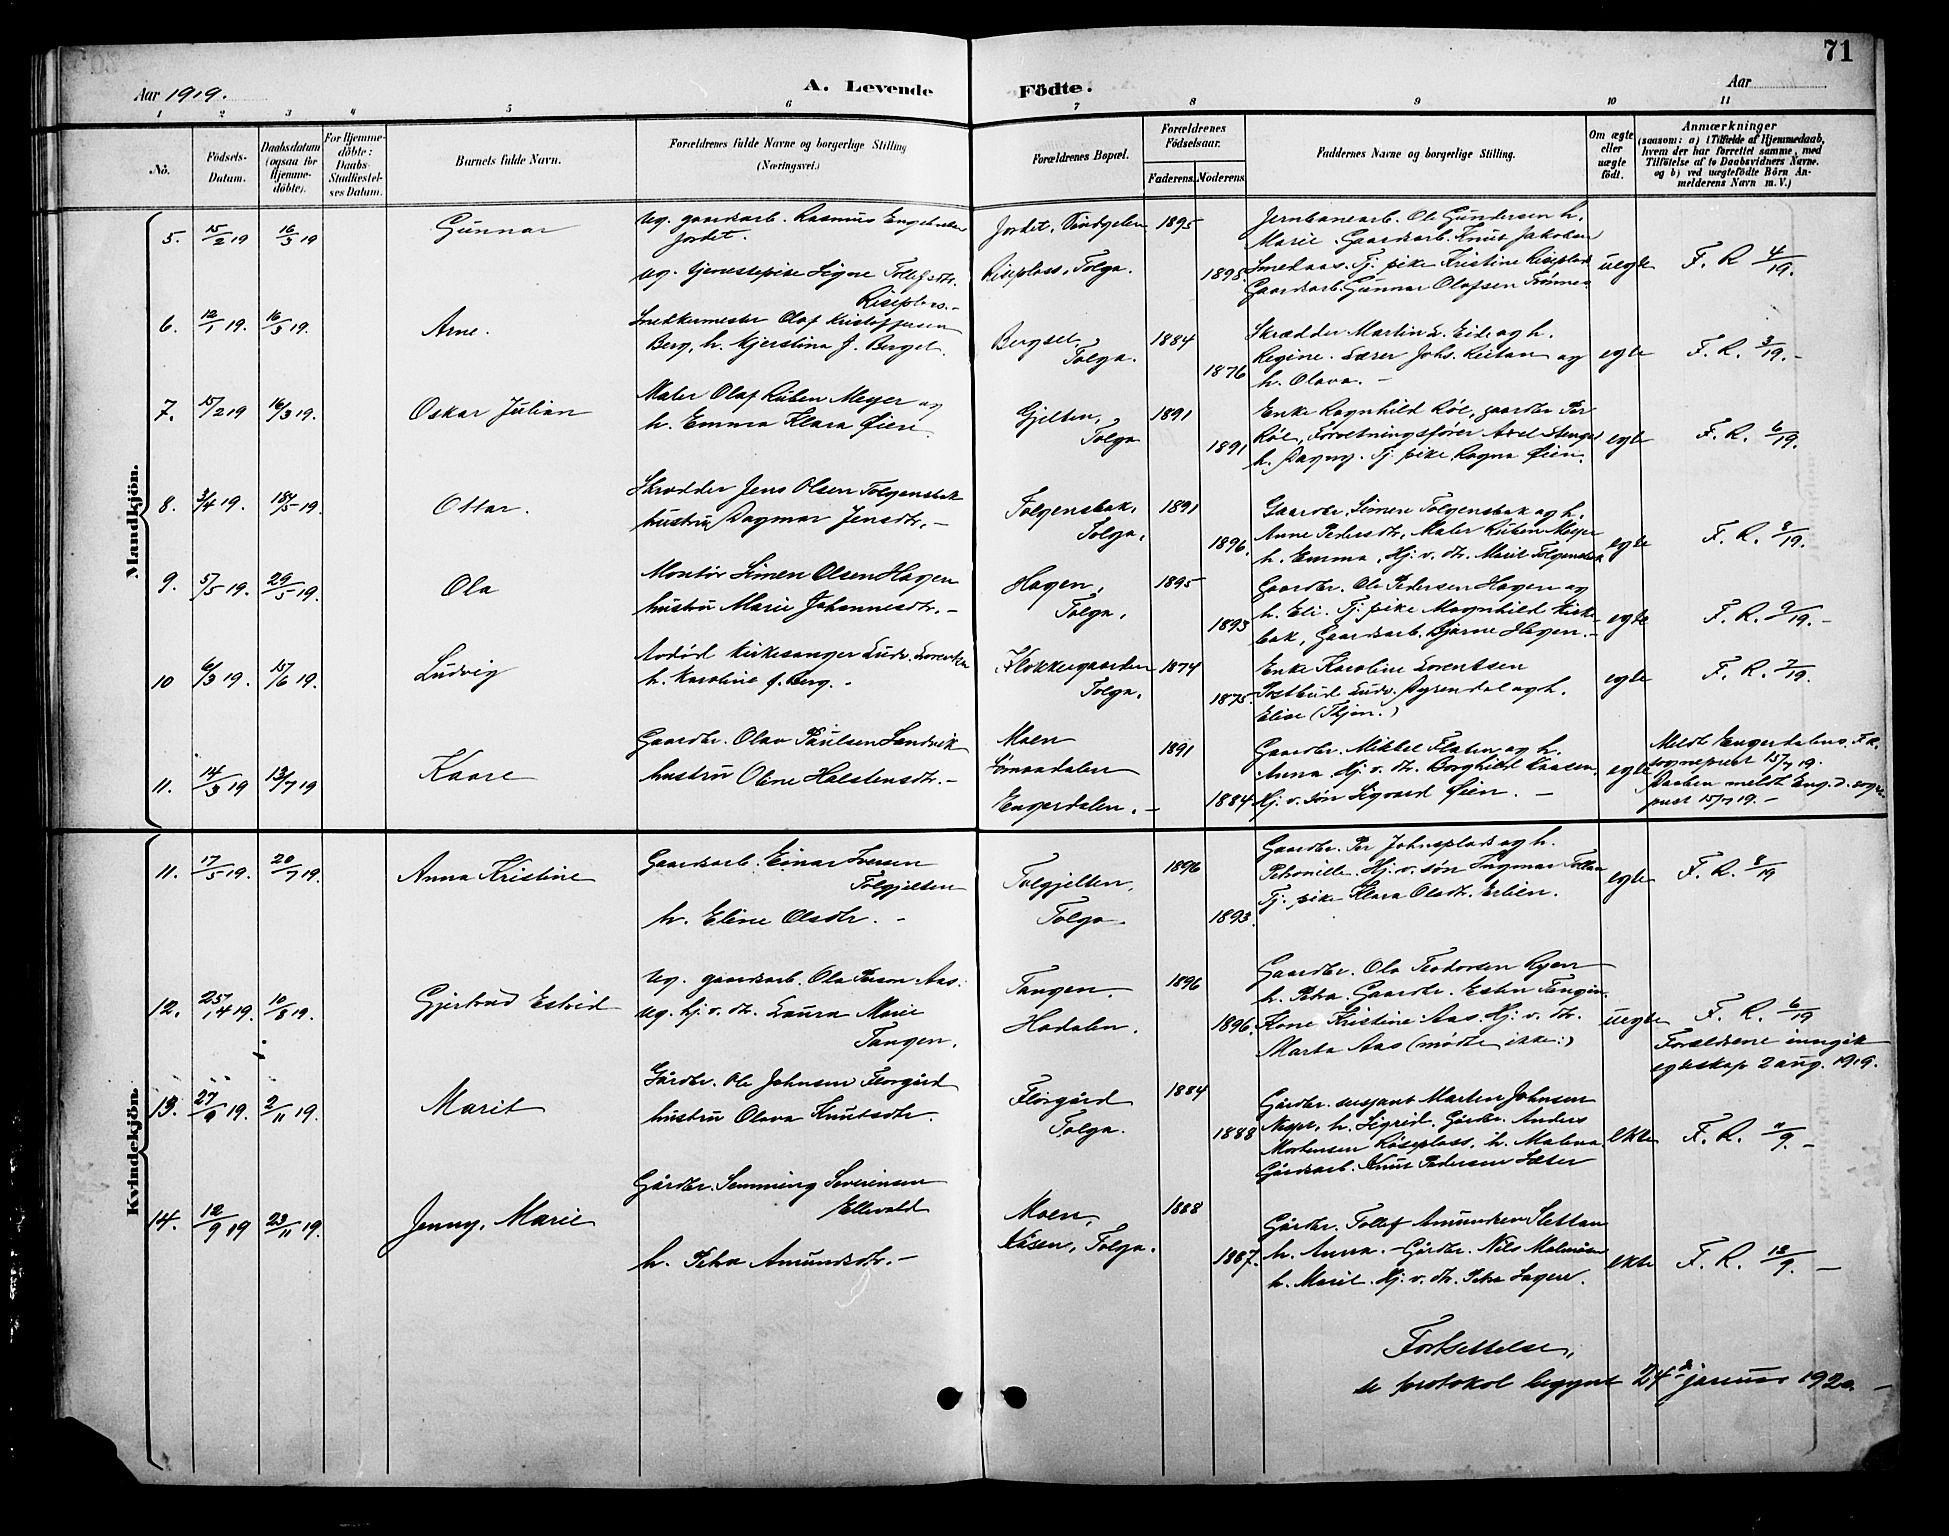 71
Aar 1919.
A. Levende Födte.
Aar
1 2 3 4 5 6 7 8 9 10 11
No.
Födsels-Datum.
Daabsdatum (ogsaa for Hjemme-döbte).
For Hjemme-döbte: Daabs-Stadfæstel-ses Datum.
Barnets fulde Navn.
Forældrenes fulde Navne og borgerlige Stilling (Næringsvei.)
Forældrenes Bopæl.
Forældrenes Födselsaar.
Faderens. Moderens.
Faddernes Navne og borgerlige Stilling.
Om ægte eller uægte födt.
Anmærkninger
(saasom: a) i Tilfælde af Hjemmedaab, hvem der har forrettet samme, med Tilföielse af to Daabsvidners Navne, og b) ved uægtefödte Börn Anmelderens Navn m. V.)
Mandkjön.
5. 15/2 19 16/3 19 Gunnar
Ug. gaardsarb. Rasmus
Jordet.
Ug. tjenestepike Signe
Riseplass.
Jordet, Vindgelen 1895
Riseplass, Tolga. 1898.
Jernbanearb. Ole Gundersen h.
Marie. Gaardsarb. Knut Jakobsen
Smedaas. Tj. pike Kristine Riseplads
Gaardsarb. Gunnar Olafsen
uegte F. R. 4/19.
6. 12/1 19. 16/3 19. Arne.
Smedkermester Olaf Kristoffersen
Berg, h. Kjerstina f. Berget.
Bergset,
Tolga. 1884 1876
Skrædder Martin E. Eide og h.
Regine. Lærer Johs. Reitan og
h. Olava. -
egte F. R. 3/19. -
7. 15/2 19 16/3 19. Oskar Julian
Maler Olaf Ruben Meyer og
h. Emma Klara Øien.
Gjelten,
Tolga 1891 1891
Enke Ragnhild Røe, gaardbr. Per
Røe, Forretningsfører Axel Stenger
h. Dagny. Tj. pike Ragna Øien.
egte F. R. 6/19.
8. 3/4 19. 18/5 19. Ottar.
Skredder Jens Olsen Tolgensbak
hustru Dagmar Jensdtr. -
Tolgensbak,
Tolga. 1891 1896.
Gaardbr. Simen Tolgensbak og h.
Anne Pedersdtr, Maler Ruben Meyer
h. Emma, Hj. v. dtr. Marit Tolgensbak
egte F. R. 8/19.
9. 5/5 19. 29/5 19. Ola
Montør Simen Olsen Hagen
hustru Marie Johannesdtr. -
Hagen,
Tolga. 1895 1893
Gaardbr. Ole Pedersen Hagen og
h. Eli. Tj. pike Magnhild Kirke-
bak, Gaardsarb. Bjarne Hagen. -
egte F. R. 9/19. -
10 6/3 19. 15/6 19. Ludvig
Avdød kirkesanger Ludv. Lorentsen
h. Karoline f. Berg. -
Klokkergaarden
Tolga. 1874 1875.
Enke Karoline Lorentsen
Postbud Ludv. Dyrendal og h.
Elise
egte F. R. 7/19.
11. 14/3 19 13/7 19 Kaare
Gaardbr. Olav Paulsen Sandvik
hustru Oline Halstensdtr. -
Moen
Engerdalen. - 1891 1884
Gaardbr. Mikkel Flaten og h.
Anna. Hj. v. dtr. Borghild Kaasen
Hj. v. søn Sigvard Øien. -
egte
Meldt Engerdalens
sogneprest 15/7 19.
Daaben meldt Eng.d. sogne-
prest 15/7 19. -
Kvindekjön.
11. 17/5 19. 20/7 19. Anna Kristine
Gaardsarb. Einar Iversen
Tolgjelten
h. Eline Olsdtr. -
Tolgjelten,
Tolga 1896 1893.
Gaardbr. Per Johnsplads og h.
Petronille. Hj. v. søn Ingmar
Tj. pike Klara Olsdtr. Erlien.
egte F. R. 8/19
12. 25/4 19. 10/8 19. Gjertrud Estrid
Ug. gaardsarb. Ola Person Aas.
Ug. hj. v. dtr. Laura Marie
Tangen.
Tangen.
Hodalen. 1896 1896.
Gaardbr. Ole Teodorsen Ryen
h. Petra. Gaardbr. Esten Tangen.
Kone Kristine Aas. Hj. v. dtr.
Marta Aas (mødte ikke:)
uegte F. R. 6/19
Forældrene inngik
egteskap 2 aug. 1919.
13. 27/9 19. 2/11 19. Marit
Gårdbr. Ole Johnsen Florgård
hustru Olava Knutsdtr.
Florgård
Tolga. 1884 1888
Gårdbr. sersjant Morten Johnsen
h. Sigrid. Gårdbr. Anders
Mortensen Riseplass, h. Malena
Gårdsarb. Knut Pedersen Sæter
ekte F. R. 11/9. -
14. 12/9 19 23/11 19. Jenny, Marie
Gårdbr. Semming Severinsen
Ellevold
h. Petra Amundsdtr. -
Moen,
Kåsen, Tolga. 1888 1887.
Gårdbr. Tollef Amundsen Slettan
h. Anna. - Gårdbr. Nils
h. Marit. Hj. v. dtr. Petra
ekte F. R. 13/9. -
Fortsettelse,
se protokol begynt 24de januar 1920. -